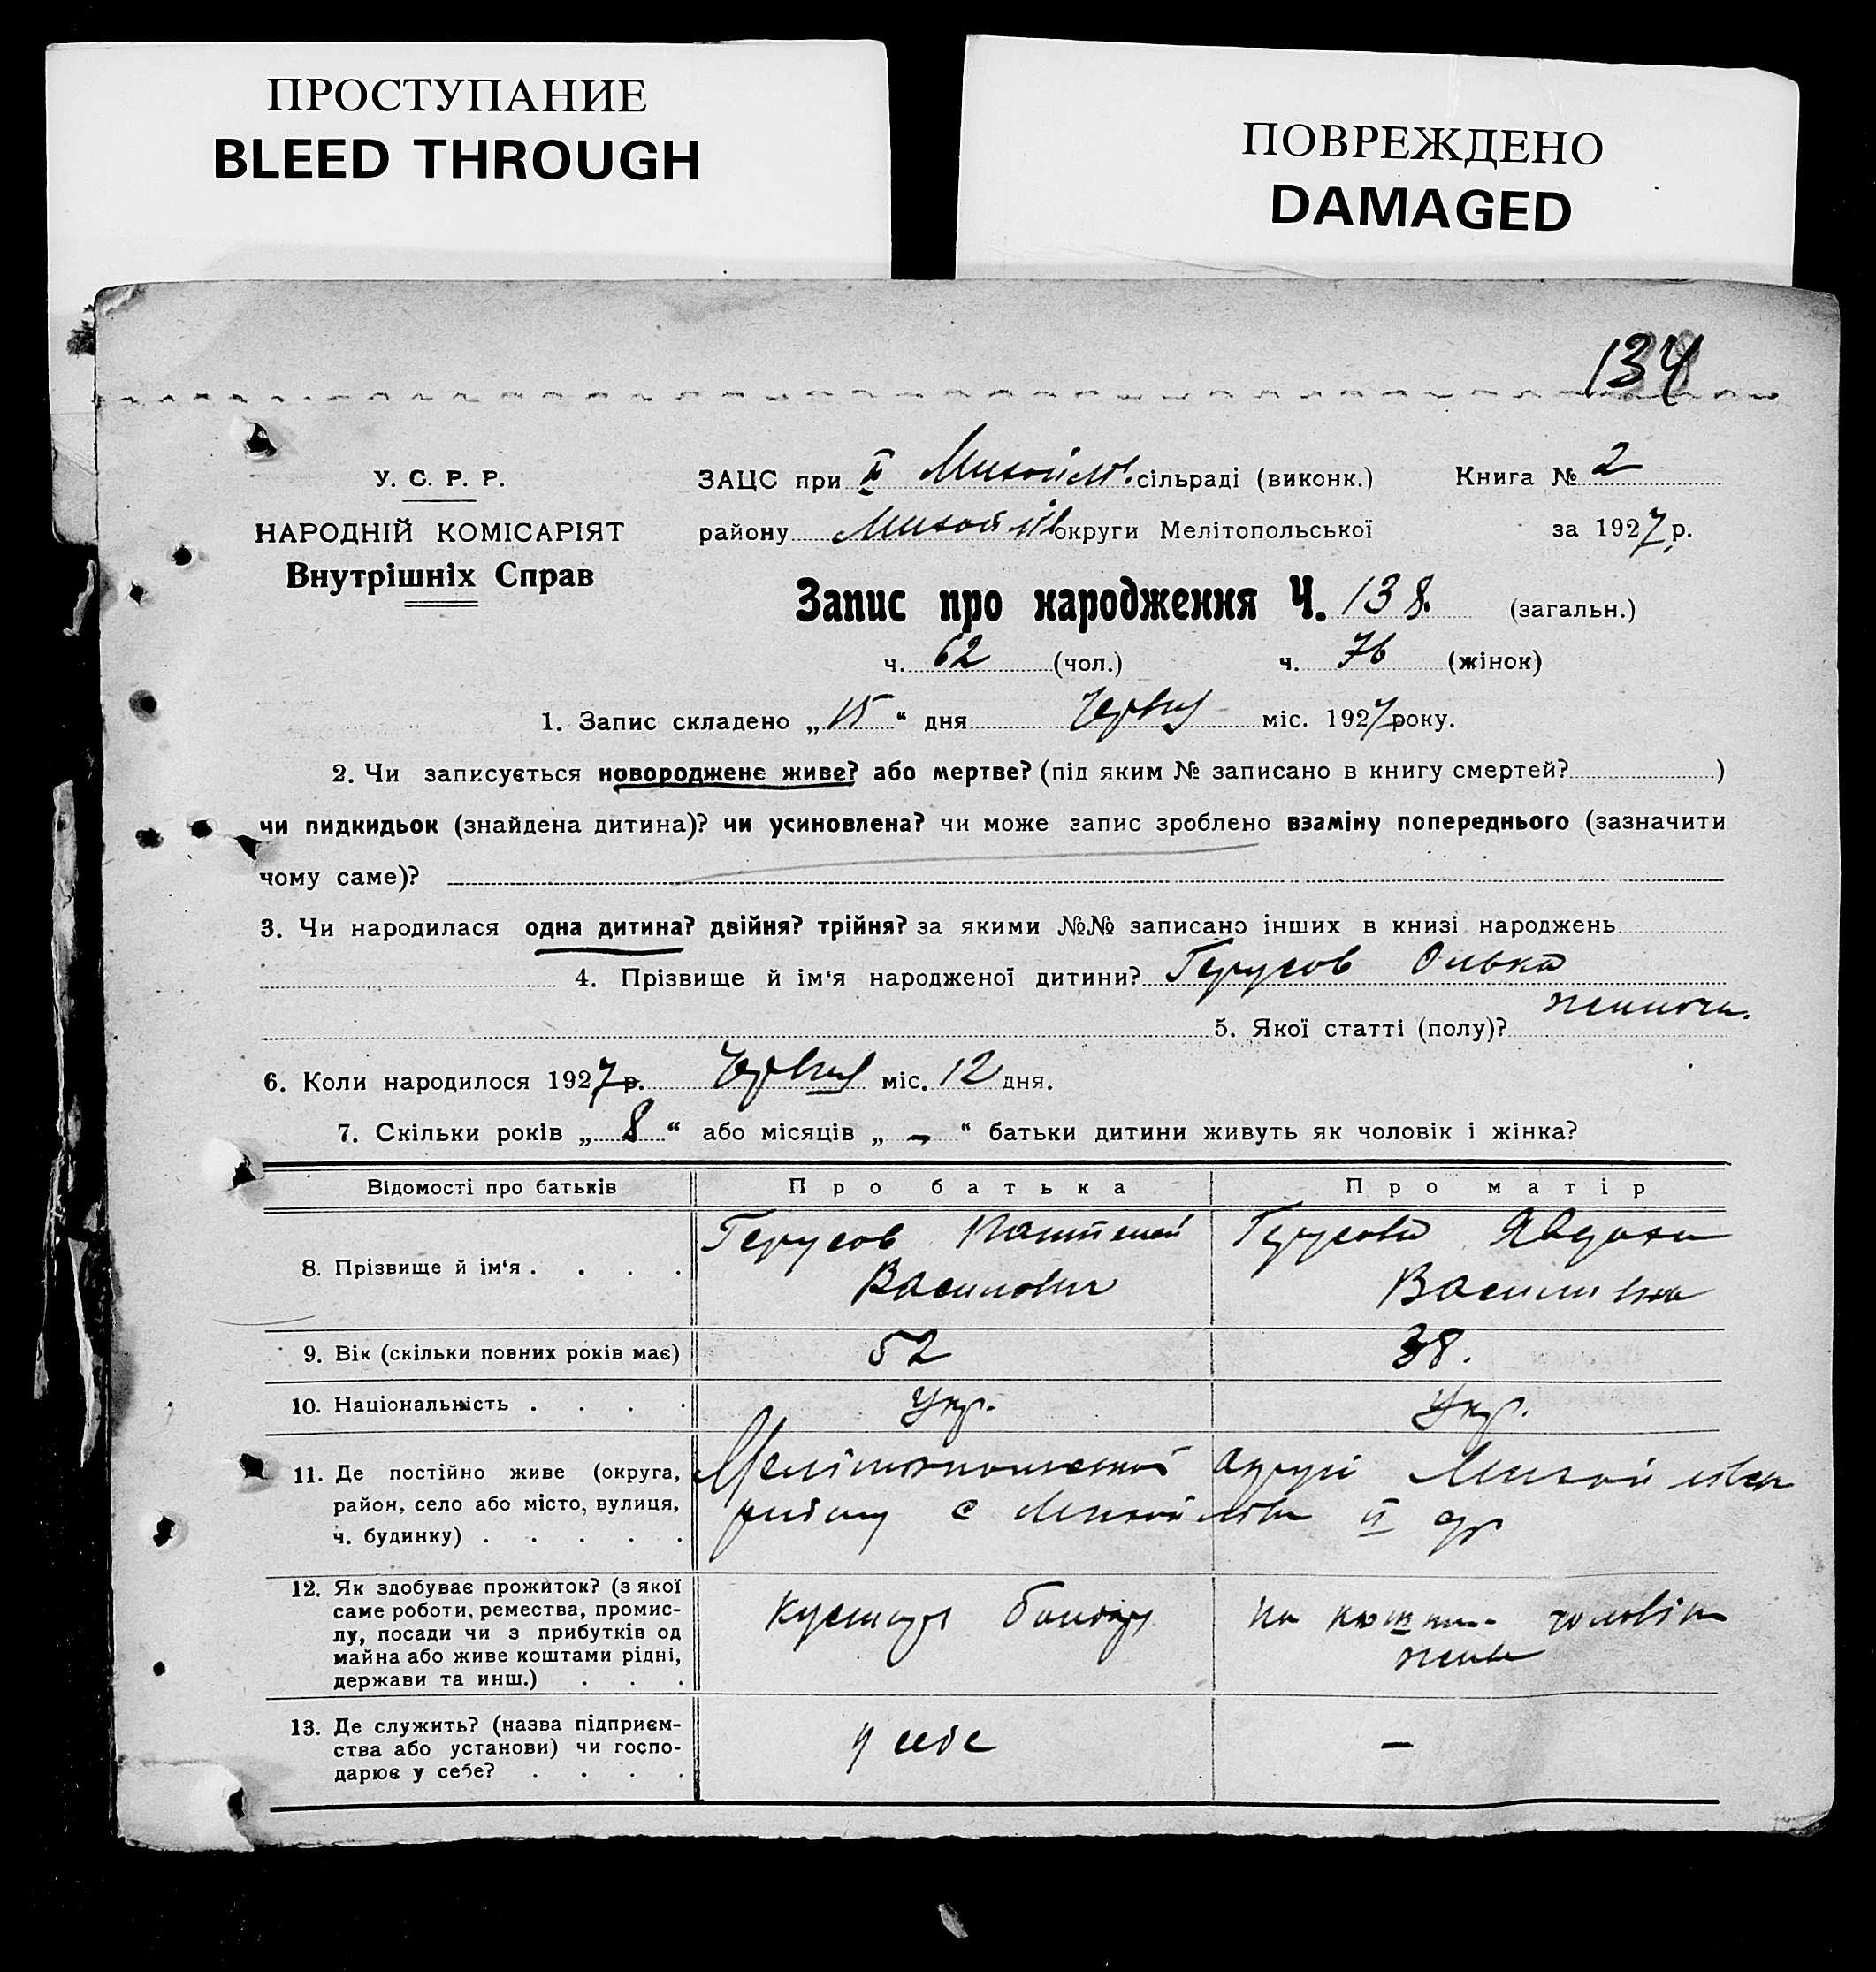 ПРОСТУПАНИЕ
BLEED THROUGH
ПОВРЕЖДЕНО
DAMAGED
134
У. С. Р. Р.
НАРОДНІЙ КОМІСАРІЯТ
Внутрішніх Справ
ЗАЦС при ІІ Михайлів. сільраді (виконк.) Книга № 2
району Михайлів округи Мелітопольської за 1927 р.
Запис про народження Ч. 138. (загальн.)
ч. 62 (чол.) ч. 76 (жінок)
1. Запис складено „ 15 “ дня Червня міс. 1927 року.
2. Чи записується новороджене живе? або мертве? (під яким № записано в книгу смертей? )
чи пидкидьок (знайдена дитина)? чи усиновлена? чи може запис зроблено взаміну попереднього (зазначити
чому саме)?
3. Чи народилася одна дитина? двійня? трійня? за якими №№ записано інших в книзі народжень
4. Прізвище й ім‘я народженої дитини? Герусов Олька
5. Якої статті (полу)? жиноча.
6. Коли народилося 1927 р. Червня міс. 12 дня.
7. Скільки років „ 8 “ або місяців „ – “ батьки дитини живуть як чоловік і жінка?
Відомості про батьків Про батька Про матір
8. Прізвище й ім‘я . . . . Герусов Пантелей Герусова Явдоха
Василович Василівна
9. Вік (скільки повних років має) 52 38.
10. Національність . . . . Укр. Укр.
11. Де постійно живе (округа, район, село або місто, вулиця, ч. будинку) . . . . . Мелітопольської округи Михайлівск
району с Михайлівка ІІ
12. Як здобуває прожиток? (з якої
саме роботи, ремества, промис-
лу, посади чи з прибутків од
майна або живе коштами рідні,
держави та инш.) . . .
кустарь бондарь на кошти чоловіка
живе
13. Де служить? (назва підприєм-
ства або установи) чи госпо-
дарює у себе? . . . .
у себе –